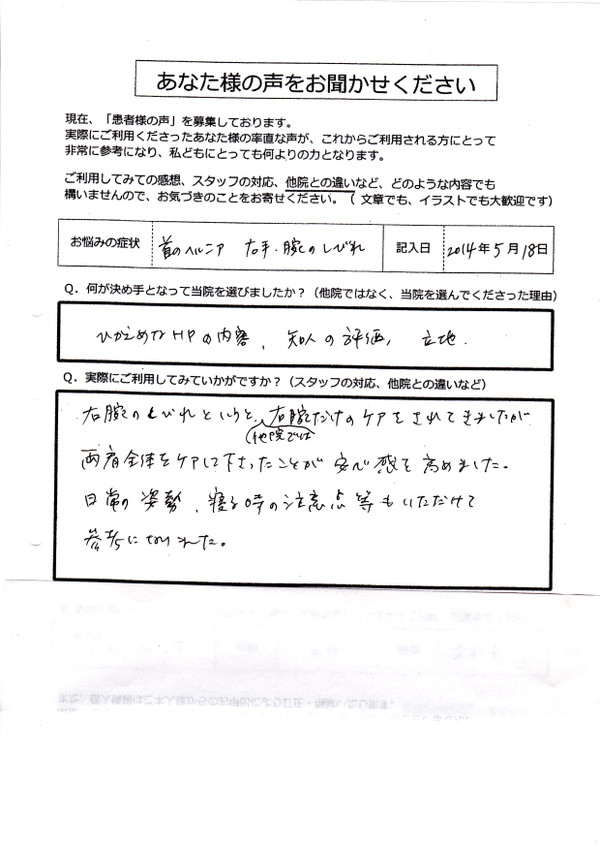 あなた様の声をお聞かせください
現在、「患者様の声」を募集しております。
実際にご利用くださったあなた様の率直な声が、これからご利用される方にとって
非常に参考になり、私どもにとっても何よりの力となります。
ご利用してみての感想、スタッフの対応、他院との違いなど、どのような内容でも
構いませんので、お気づきのことをお寄せください。（ 文章でも、イラストでも大歓迎です）
お悩みの症状 首のヘルニア 右手・腕のしびれ 記入日 2014年5月18日
Q．何が決め手となって当院を選びましたか？（他院ではなく、当院を選んでくださった理由）
ひかえめなHPの内容、知人の評価、立地．
Q．実際にご利用してみていかがですか？（スタッフの対応、他院との違いなど）
右腕のしびれというと、右腕だけのケアをされてきましたが
（他院では
両肩全体をケアして下さったことが安心感を高めました。
日常の姿勢、寝る時の注意点等もいただけて
参考になりました。